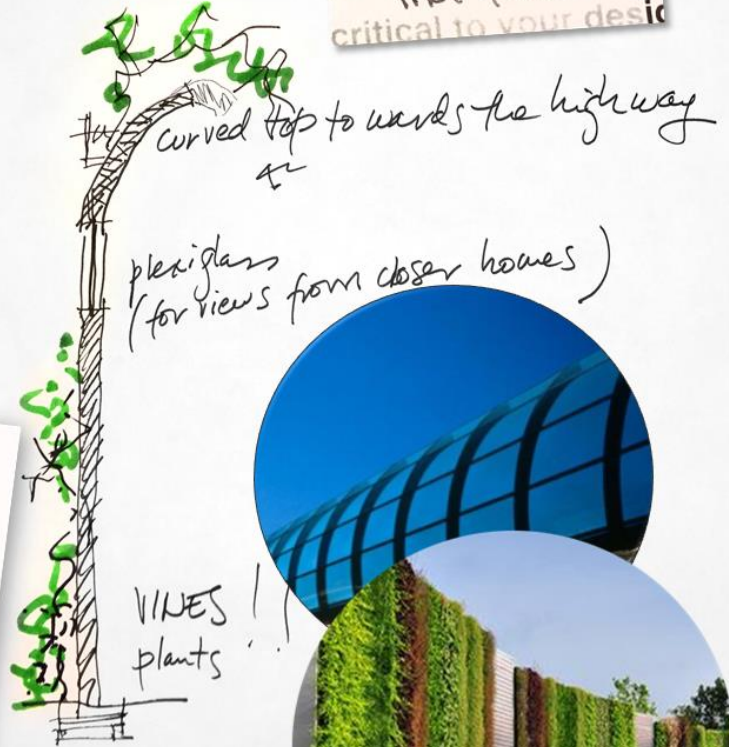 critical to your desig
curved top towards the highway
plexiglass
(for views from closer homes)
VINES !!
plants